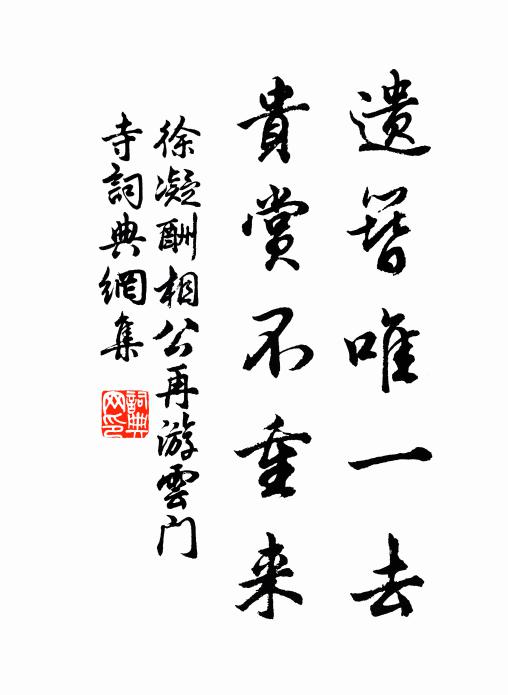 遺簪唯一去
貴賞不重来
徐凝酬相公再游雲門
寺詞典網集
詞典
网印